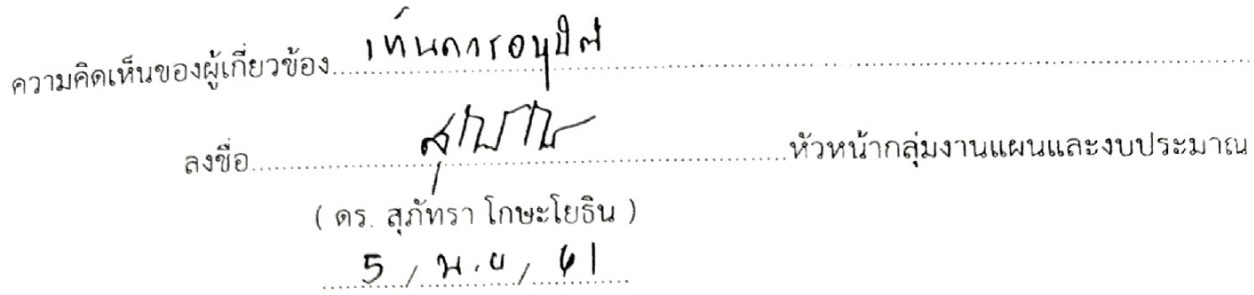 ความคิดเห็นของผู้เกี่ยวข้อง เห็นควรอนุมัติ
ลงชื่อ หัวหน้ากลุ่มงานแผนและงบประมาณ
( ดร. สุภัทรา โกษะโยธิน )
5 / พ.ย / 61